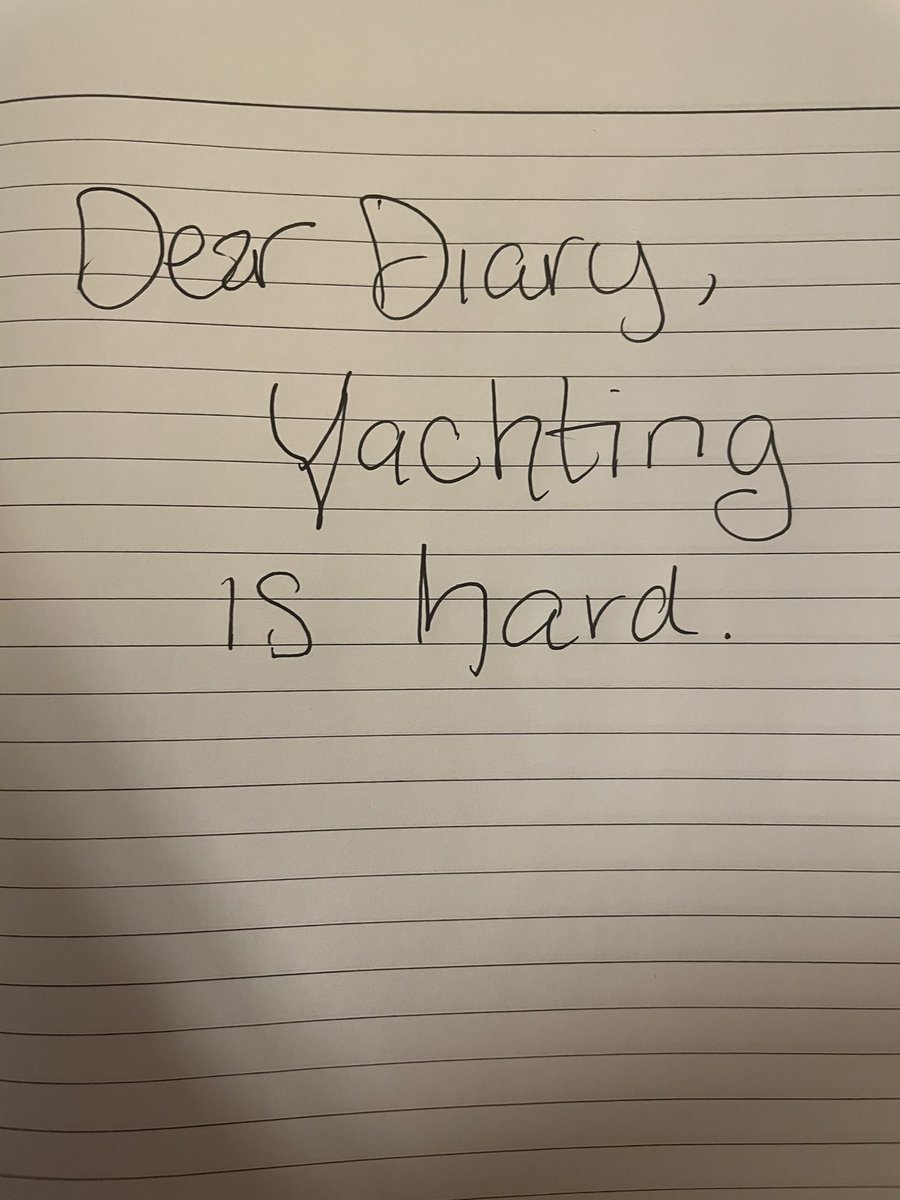 Dear Diary,
Yachting
is hard.